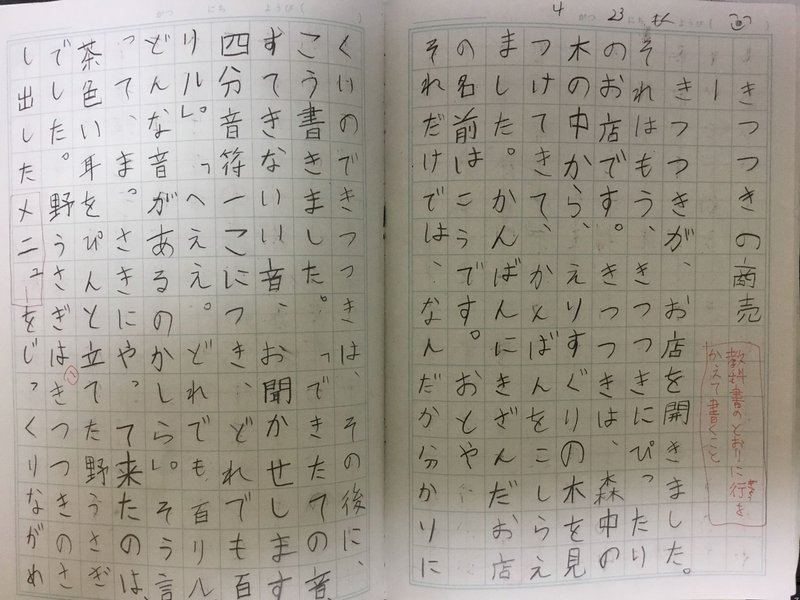 4 がつ 23 にち もく ようび( )
きつつきの商売
教科書のとおりに行を
かえて書くこと
一
きつつきが、お店を開きました。
それはもう、きつつきにぴったり
のお店です。きつつきは、森中の
木の中から、えりすぐりの木を見
つけてきて、かんばんをこしらえ
ました。かんばんにきざんだお店
の名前はこうです。おとや
それだけでは、なんだか分かりに
がつ にち ようび( )
くいのできつつきは、その後に、
こう書きました。「できたての音、
すてきないい音、お聞かせします
四分音符一こにつき、どれでも百
リル」。「へええ。どれでも百リル
どんな音があるのかしら」。そう言
って、まっさきにやって来たのは、
茶色い耳をぴんと立てた野うさぎ
でした。野うさぎはきつつきのさ
し出したメニューをじっくりながめ